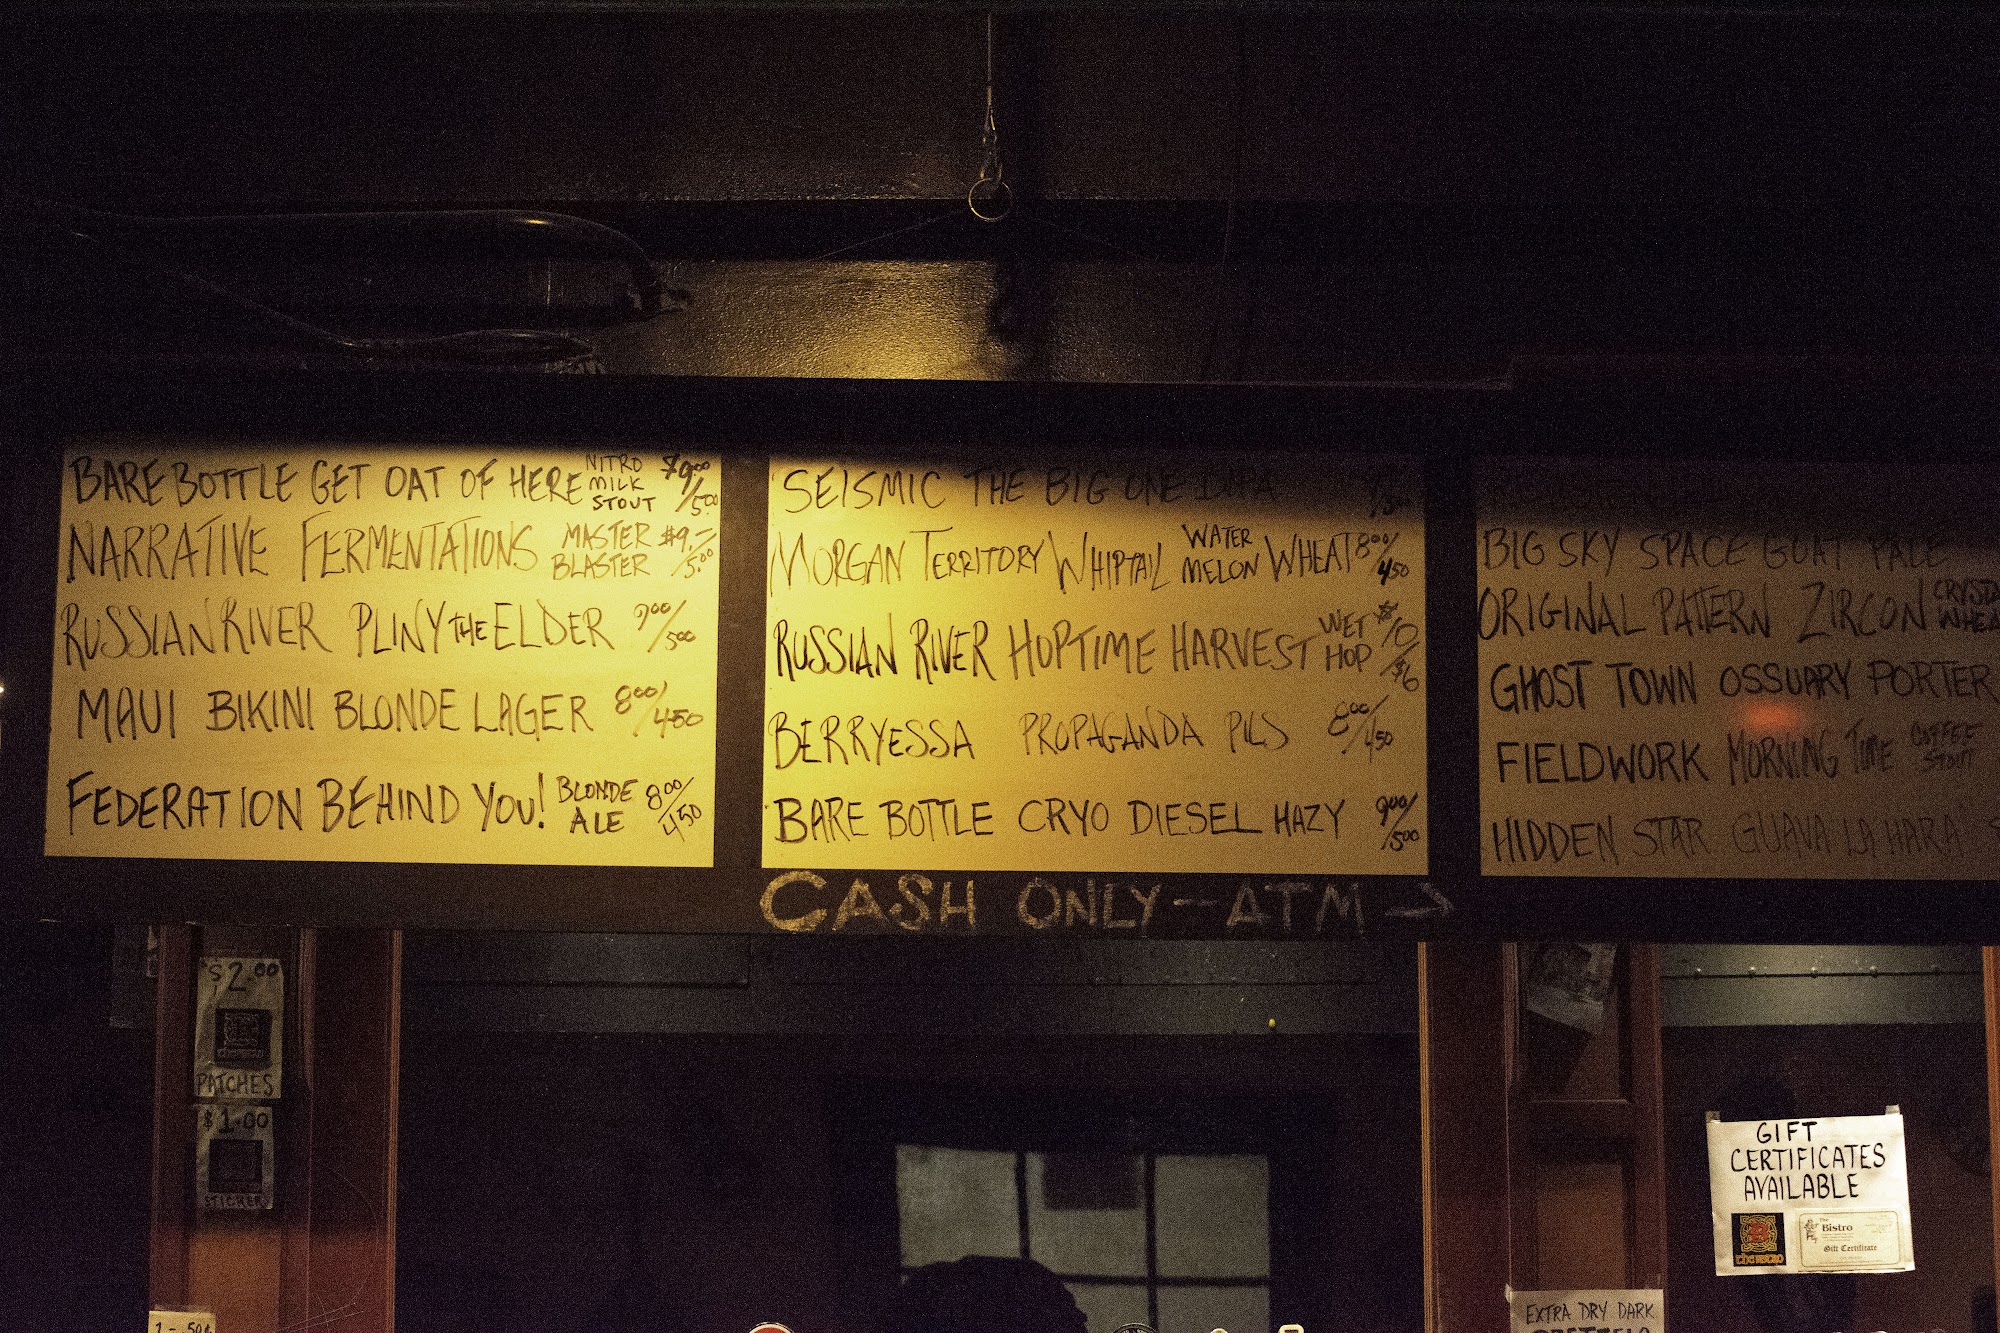 BARE BOTTLE GET OAT OF HERE NITRO MILK STOUT $9.00/5.00
NARRATIVE FERMENTATIONS MASTER BLASTER $9.-/5.00
RUSSIAN RIVER PLINY THE ELDER 9.00/5.00
MAUI BIKINI BLONDE LAGER 8.00/4.50
FEDERATION BEHIND YOU! BLONDE ALE 8.00/4.50
SEISMIC THE BIG ONE
MORGAN TERRITORY WHIPTAIL WATER MELON WHEAT 8.00/4.50
RUSSIAN RIVER HOPTIME HARVEST WET HOP $10/$6
BERRYESSA PROPAGANDA PILS 8.00/4.50
BARE BOTTLE CRYO DIESEL HAZY 9.00/5.00
BIG SKY SPACE GOAT PALE
ORIGINAL PATTERN ZIRCON
GHOST TOWN OSSUARY PORTER
FIELDWORK MORNING TIME COFFEE STOUT
HIDDEN STAR GUAVA LA HARA
CASH ONLY - ATM →
$2.00
PATCHES
$1.00
STICKERS
GIFT
CERTIFICATES
AVAILABLE
The
Bistro
Gift Certificate
EXTRA DRY DARK